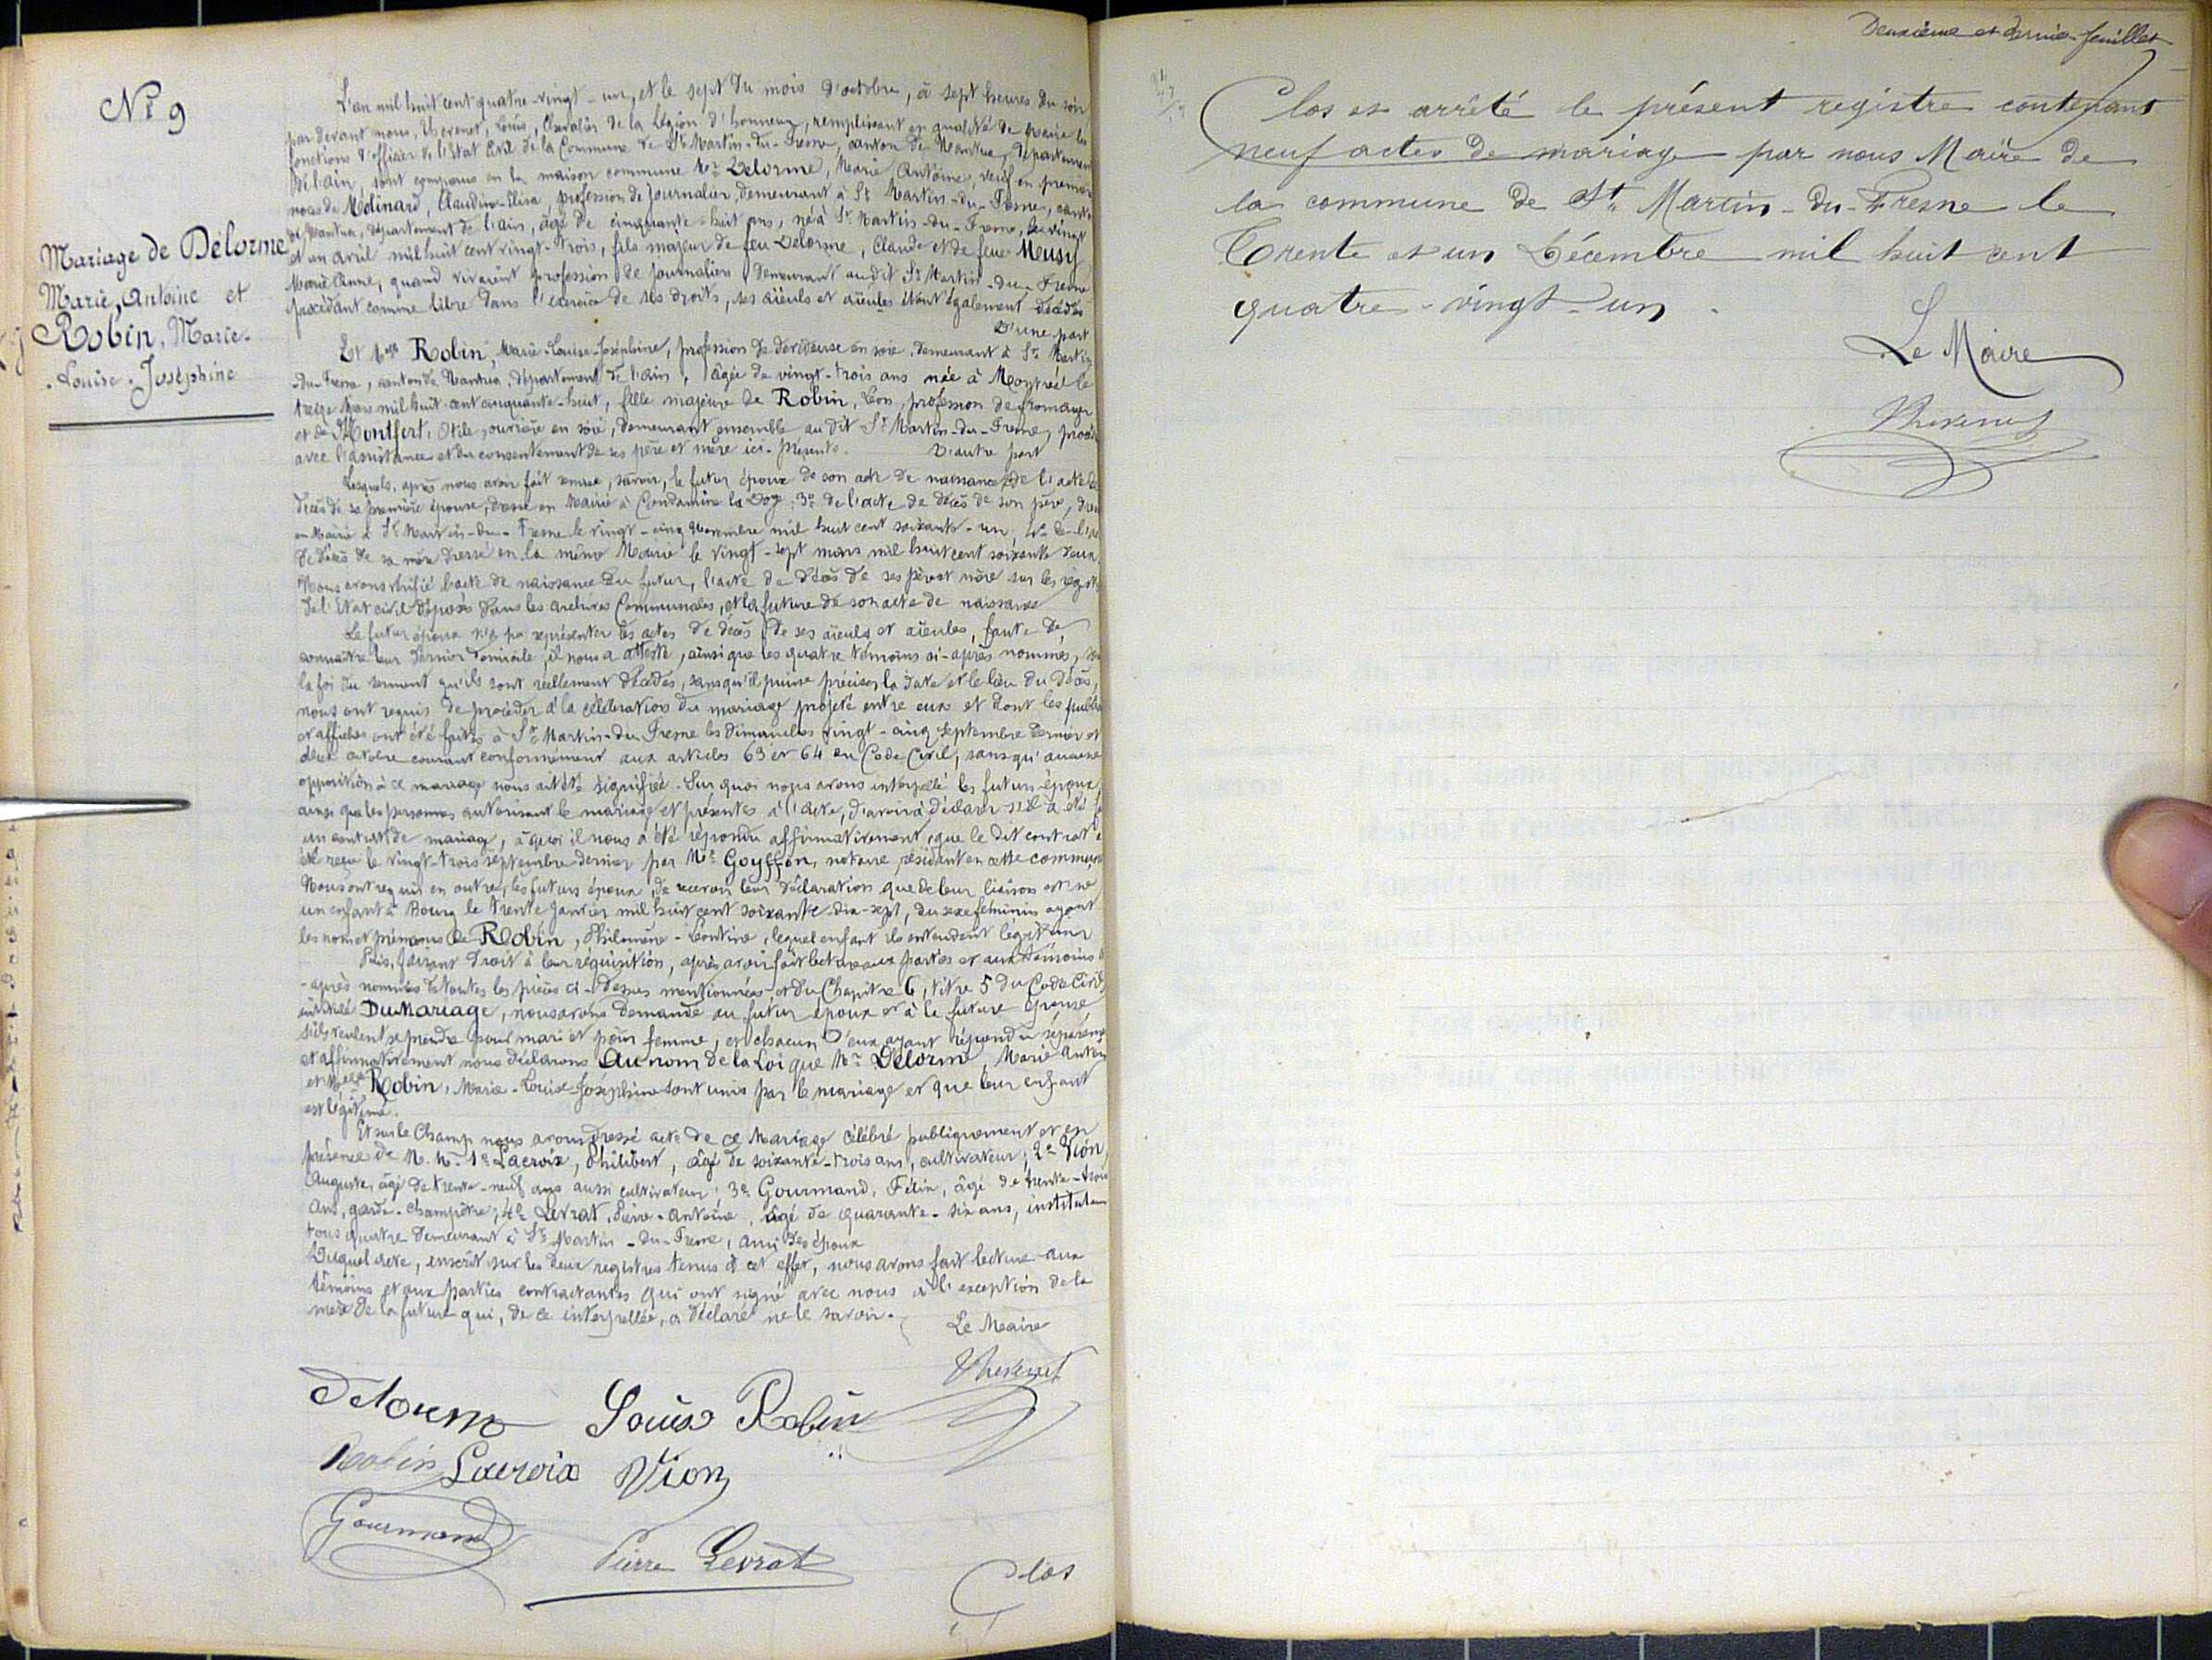 Nº 9
Mariage de Delorme
Marie, Antoine et
Robin, Marie-
Louise-Joséphine
L'an mil huit cent quatre-vingt-un, et le sept du mois d'octobre, à sept heures du soir
par devant nous, Thevenet, Louis, Chevalier de la Légion d'honneur, remplissant en qualité de Maire les
fonctions d'officier de l'état civil de la Commune de St Martin-du-Fresne, canton de Nantua, département
de l'ain, sont comparus en la maison commune Mr Delorme, Marie Antoine, veuf en première
noces de Molinard, Claudine-Elisa, profession de journalier, demeurant à St Martin-du-Fresne, canton
de Nantua, département de l'ain, âgé de cinquante-huit ans, né à St Martin-du-Fresne, le vingt
et un avril mil huit cent vingt-trois, fils majeur de feu Delorme, Claude et de feue Meusy
Marie Anne, quand vivaient profession de journaliers demeurant au dit St Martin-du-Fresne
procédant comme libre dans l'exercice de ses droits, ses aïeuls et aïeules étant également décédés
D'une part
Et Melle Robin, Marie-Louise-Joséphine, profession de dévideuse en soie, demeurant à St Martin
-du-Fresne, canton de Nantua, département de l'ain, âgée de vingt-trois ans née à Montréal le
treize Mars mil huit cent cinquante-huit, fille majeure de Robin, Léon, profession de fromager
et de Montfert, Otile, ouvrière en soie, demeurant ensemble au dit St Martin-du-Fresne, procéd
avec l'assistance et du consentement de ses père et mère ici-présents. D'autre part
Lesquels, après nous avoir fait remise, savoir, le futur époux de son acte de naissance, de l'acte de
décès de sa première épouse, dressé en Mairie à Condamine la Doye; 3º de l'acte de décès de son père, dressé
en Mairie à St Martin-du-Fresne le vingt-cinq Novembre mil huit cent soixante-un, 4º de l'acte
de décès de sa mère dressé en la même Mairie le vingt-sept mars mil huit cent soixante deux.
Nous avons vérifié l'acte de naissance du futur, l'acte de décès de ses père et mère sur les regist
de l'Etat civil déposés dans les archives Communales, et la future de son acte de naissance
Le futur époux n'a pu représenter les actes de décès de ses aïeuls et aïeules, faute de
connaître leur dernier domicile, il nous a attesté, ainsi que les quatre témoins ci-après nommés, sur
la foi du serment qu'ils sont réellement décédés, sans qu'il puisse préciser la date et le lieu du décès,
nous ont requis de procéder à la célébration du mariage projeté entre eux et dont les public
et affiches ont été faites à St Martin-du-Fresne les dimanches vingt-cinq septembre dernier et
deux octobre courant conformément aux articles 63 et 64 du Code Civil, sans qu'aucune
opposition à ce mariage nous ait été signifiée. Sur quoi nous avons interpellé les futurs époux,
ainsi que les personnes autorisant le mariage et présentes à l'acte, d'avoir à déclarer s'il a été
un contrat de mariage, à quoi il nous a été répondu affirmativement, que le dit contrat
été reçu le vingt-trois septembre dernier par Me Goyffon, notaire, résidant en cette commune
Nous ont requis en outre, les futurs époux, de recevoir leur déclaration que de leur liaison est né
un enfant à Bourg le trente janvier mil huit cent soixante-dix-sept, du sexe féminin ayant
les nom et prénoms de Robin, Philomène-Léontine, lequel enfant ils entendent légitimer
Puis, faisant droit à leur réquisition, après avoir fait lecture aux parties et aux témoins
-après nommés de toutes les pièces ci-dessus mentionnées et du Chapitre 6, titre 5 du Code Civil
intitulé Du Mariage, nous avons demandé au futur époux et à la future épouse
s'ils veulent se prendre pour mari et pour femme, et chacun d'eux ayant répondu séparément
et affirmativement nous déclarons Au nom de la Loi que Mr Delorme, Marie Antoine
et Melle Robin, Marie-Louise-Joséphine sont unis par le mariage et que leur enfant
est légitimé.
Et sur le Champ nous avons dressé acte de ce Mariage célébré publiquement et en
présence de M. M. 1º Lacroix, Philibert, âgé de soixante-trois ans, cultivateur; 2º Vion,
Auguste, âgé de trente-neuf ans aussi cultivateur; 3º Gourmand, Félix, âgé de trente-trois
ans, garde-champêtre; 4º Levrat, Pierre-Antoine, âgé de quarante-six ans, instituteur
tous quatre demeurant à St Martin-du-Fresne, amis des époux
Duquel acte, inscrit sur les deux registres tenus à cet effet, nous avons fait lecture aux
témoins et aux parties contractantes qui ont signé avec nous à l'exception de la
mère de la future qui, de ce interpellée, a déclaré ne le savoir.
Le Maire
Thevenet
Delorme Louise Robin
Robin Lacroix Vion
Gourmand
Pierre Levrat
Clos
Deuxième et dernier feuillet
Clos et arrêté le présent registre contenant
neuf actes de mariage par nous Maire de
la commune de St Martin-du-Fresne le
Trente et un Décembre mil huit cent
quatre-vingt-un.
Le Maire
Thevenet